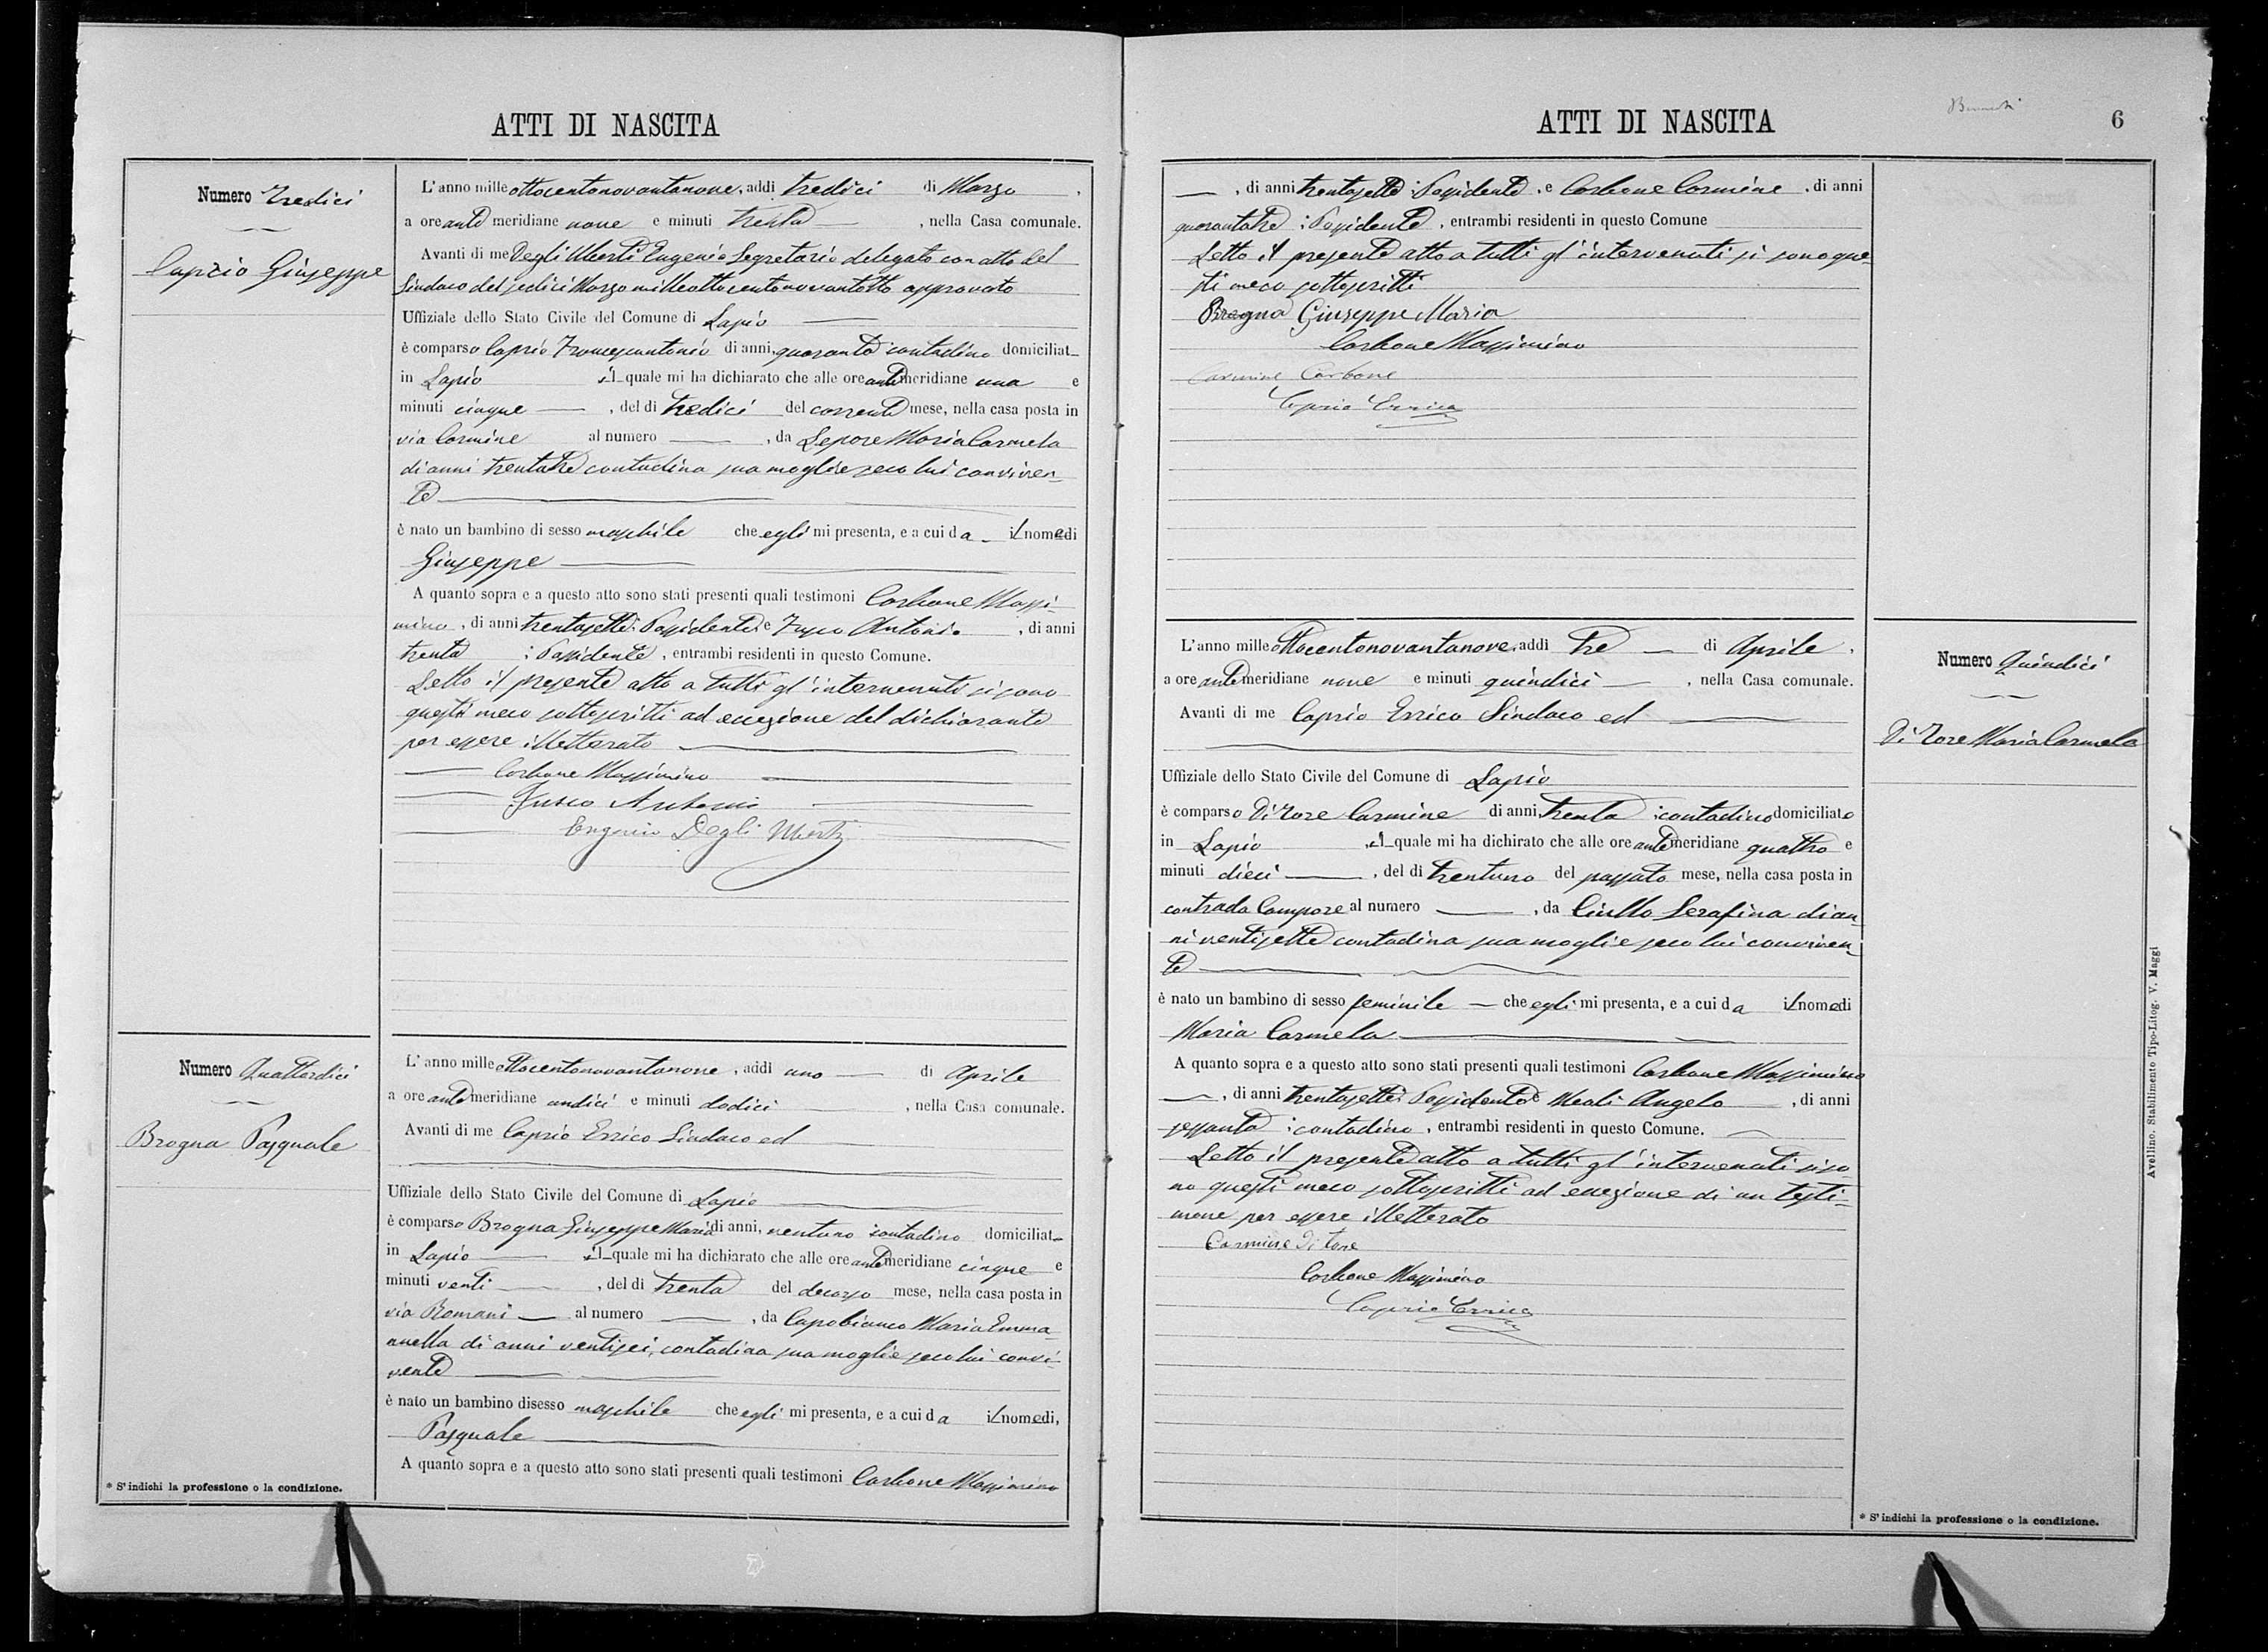 ATTI DI NASCITA
Numero Tredici
Caprio Giuseppe
L'anno mille ottocentonovantanove, addi tredici di Marzo,
a ore ante meridiane nove e minuti trenta, nella Casa comunale.
Avanti di me Degli Uberti Eugenio Segretario delegato con atto del
Sindaco del sedici Marzo milleottocentonovantotto approvato
Uffiziale dello Stato Civile del Comune di Lapio
è comparso Caprio Francescantonio di anni, quaranta contadino domiciliat
in Lapio il quale mi ha dichiarato che alle ore antemeridiane una e
minuti cinque, del di tredici del corrente mese, nella casa posta in
via Carmine al numero, da Lepore Maria Carmela
di anni trentatre contadina sua moglie seco lui conviven
te
è nato un bambino di sesso maschile che egli mi presenta, e a cui da il nome di
Giuseppe
A quanto sopra e a questo atto sono stati presenti quali testimoni Carbone Massi-
mino, di anni trentasette Possidente e Fusco Antonio, di anni
trenta Possidente, entrambi residenti in questo Comune.
Letto il presente atto a tutti gl'intervenuti si sono
questi meco sottoscritti ad eccezione del dichiarante
per essere illetterato
Carbone Massimino
Fusco Antonio
Eugenio Degli Uberti
Numero Quattordici
Brogna Pasquale
L'anno mille ottocentonovantanove, addi uno di Aprile
a ore antemeridiane undici e minuti dodici, nella Casa comunale.
Avanti di me Caprio Errico Sindaco ed
Uffiziale dello Stato Civile del Comune di Lapio
è comparso Brogna Giuseppe Maria di anni, ventuno contadino domiciliat
in Lapio il quale mi ha dichiarato che alle ore antemeridiane cinque e
minuti venti, del di trenta del decorso mese, nella casa posta in
via Romani al numero, da Capobianco Maria Emma
nuella di anni ventisei, contadina sua moglie seco lui convi-
vente
è nato un bambino di sesso maschile che egli mi presenta, e a cui da il nome di,
Pasquale
A quanto sopra e a questo atto sono stati presenti quali testimoni Carbone Massimino
* S'indichi la professione o la condizione.
ATTI DI NASCITA
6
, di anni trentasette Possidente, e Carbone Carmine, di anni
quarantatre Possidente, entrambi residenti in questo Comune
Letto il presente atto a tutti gl'intervenuti si sono que-
sti meco sottoscritti
Brogna Giuseppe Maria
Carbone Massimino
Carmine Carbone
Caprio Errico
Numero Quindici
Di Tore Maria Carmela
L'anno mille ottocentonovantanove, addi tre di Aprile,
a ore antemeridiane nove e minuti quindici, nella Casa comunale.
Avanti di me Caprio Errico Sindaco ed
Uffiziale dello Stato Civile del Comune di Lapio
è comparso Di Tore Carmine di anni, trenta contadino domiciliato
in Lapio il quale mi ha dichirato che alle ore antemeridiane quattro e
minuti dieci, del di trentuno del passato mese, nella casa posta in
contrada Campore al numero, da Ciullo Serafina di an
ni ventisette contadina sua moglie seco lui conviven
te
è nato un bambino di sesso feminile che egli mi presenta, e a cui da il nome di
Maria Carmela
A quanto sopra e a questo atto sono stati presenti quali testimoni Carbone Massimino
, di anni trentasette Possidente e Meoli Angelo, di anni
sessanta contadino, entrambi residenti in questo Comune.
Letto il presente atto a tutti gl'intervenuti si so
no questi meco sottoscritti ad eccezione di un testi-
mone per essere illetterato
Carmine Di Tore
Carbone Massimino
Caprio Errico
* S'indichi la professione o la condizione.
Avellino. Stabilimento Tipo-Litog. V. Maggi